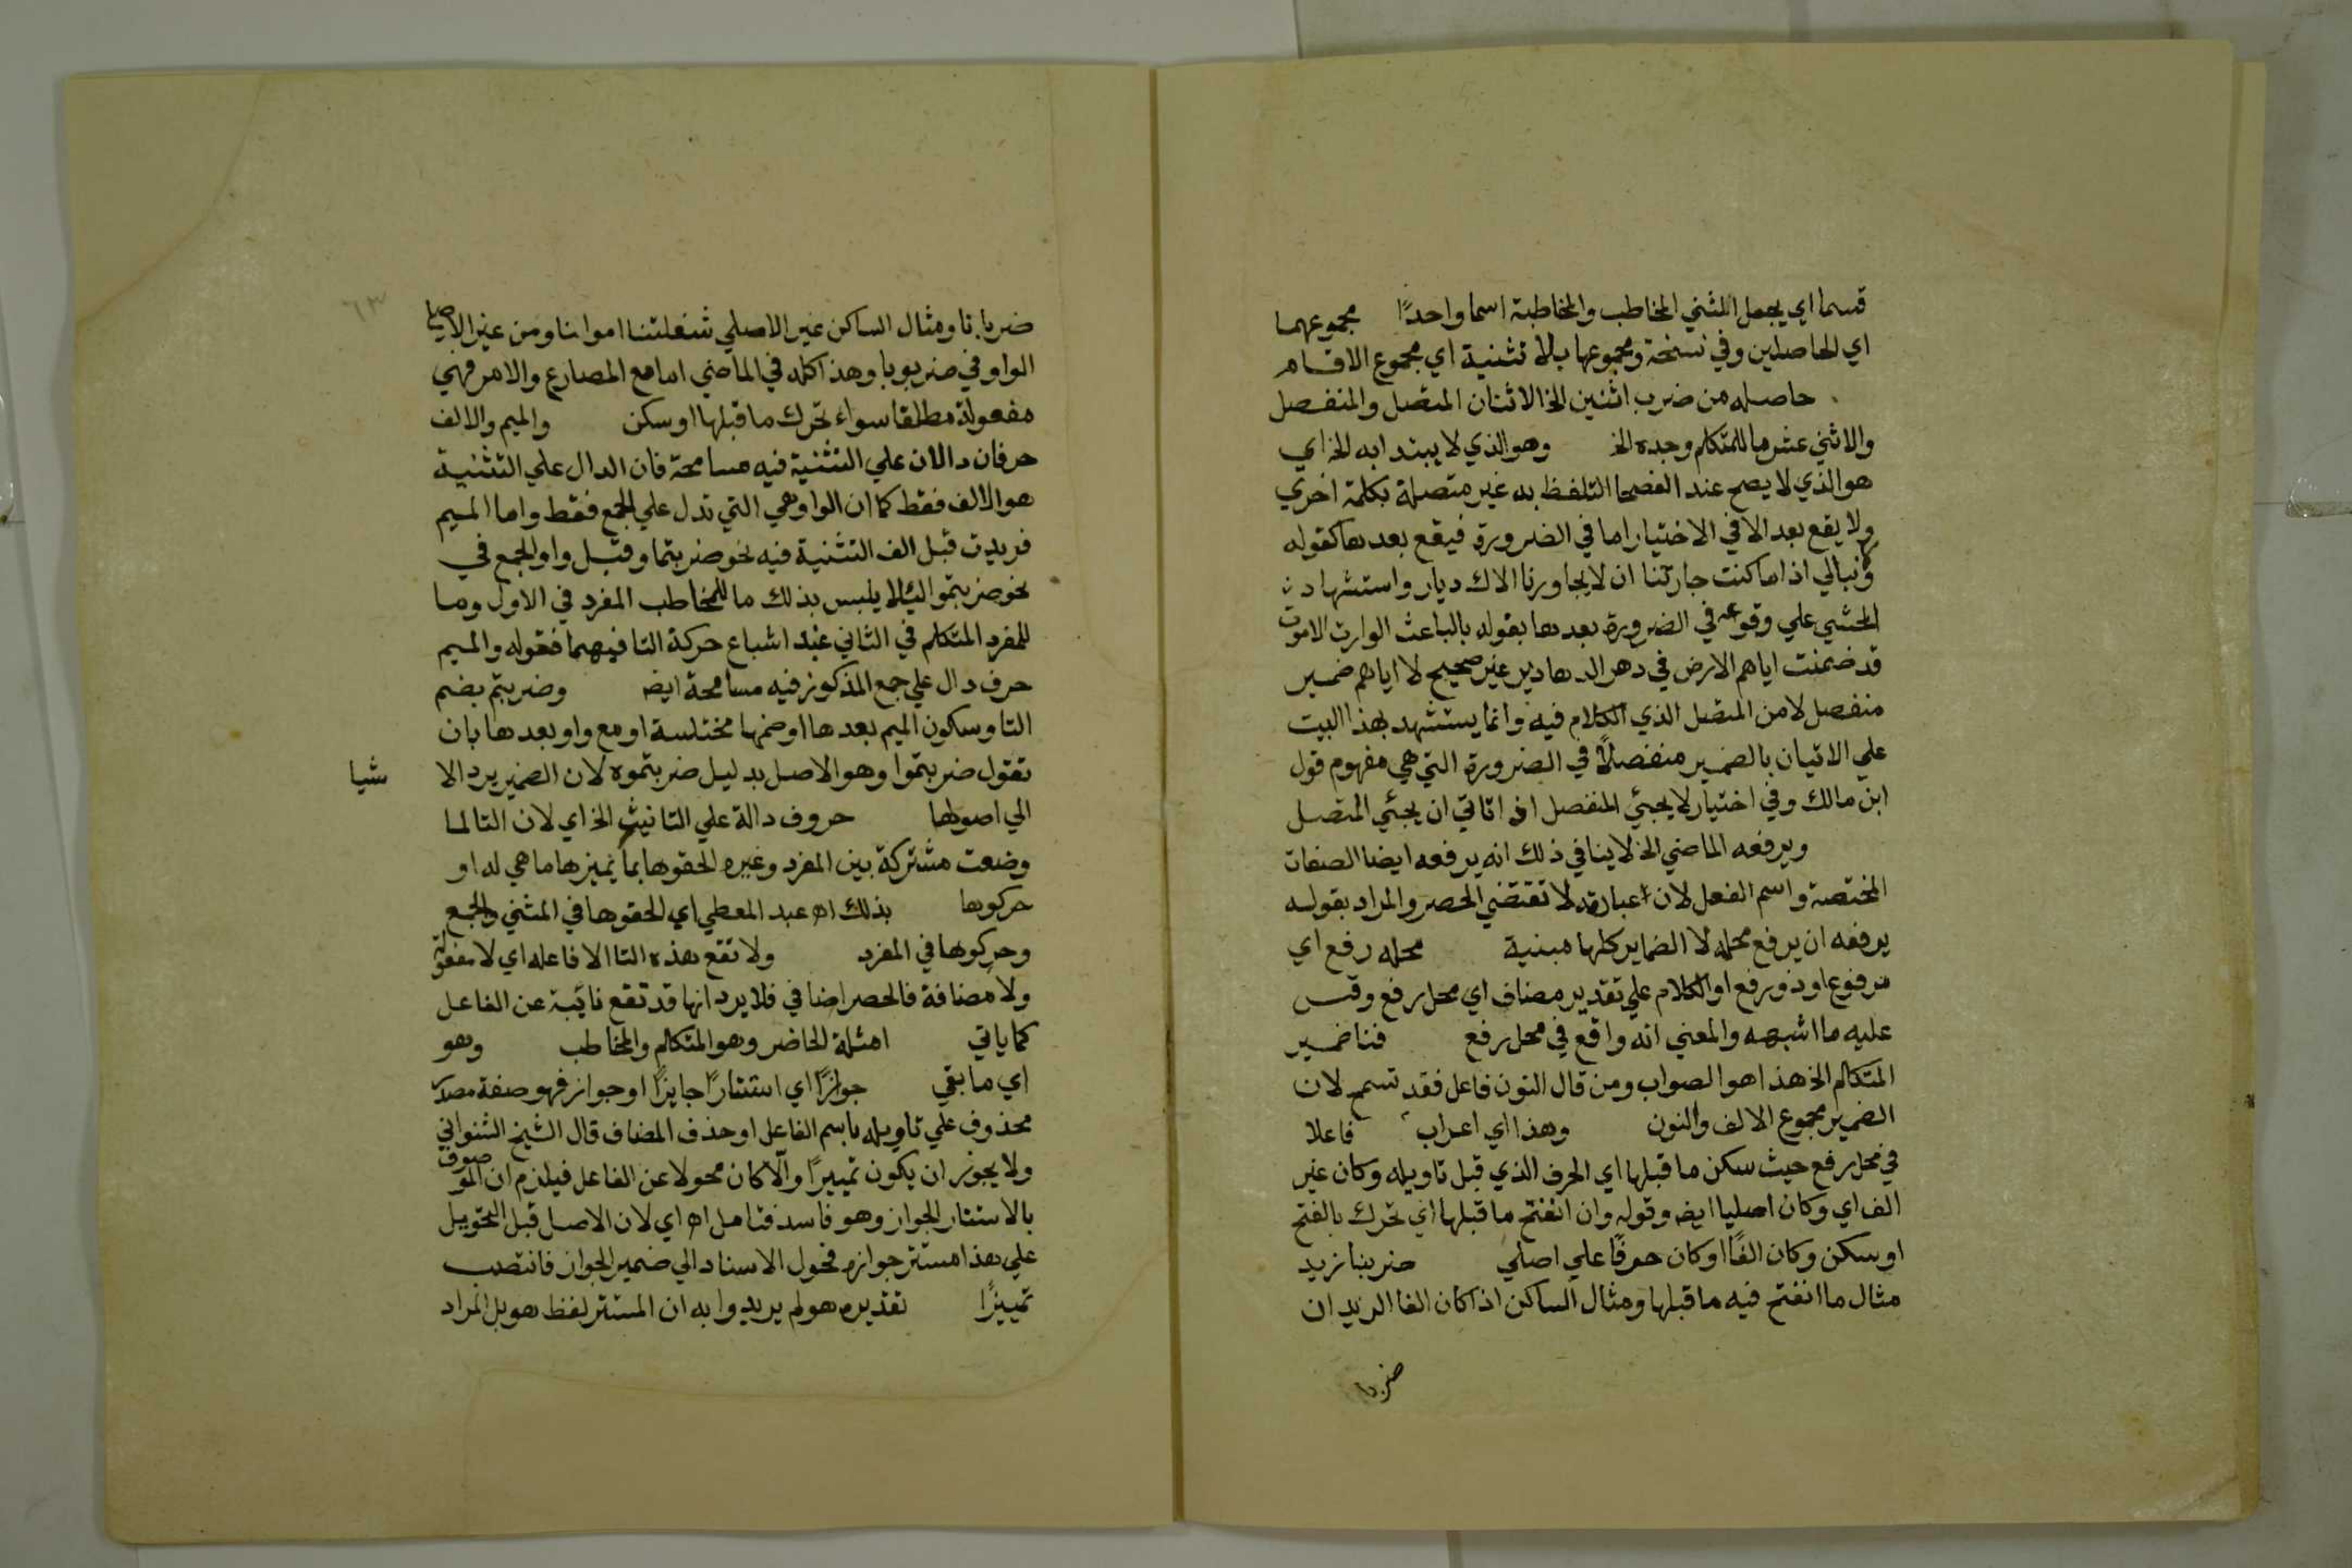 قسما اي يجعل المثني المخاطب والمخاطبة اسما واحدًا مجموعهما
اي الحاصلين وفي نسخة ومجموعها بلا تثنية اي مجموع الاقسام
حاصله من ضرب اثنين الخ الاثنان المتصل والمنفصل
والاثني عشر ما للمتكلم وحده الخ وهو الذي لا يبتدا به الخ اي
هو الذي لا يصح عند الفصحا التلفظ به غير متصلة بكلمة اخري
ولا يقع بعد الا في الاختيار اما في الضرورة فيقع بعدها كقوله
وما نبالي اذا ما كنت جارتنا ان لا يجاورنا الاك ديار واستشهاد
المحشي علي وقوعه في الضرورة بعدها بقوله بالباعث الوارث الاموات
قد ضمنت اياهم الارض في دهر الدهادير غير صحيح لا اياهم ضمير
منفصل لا من المتصل الذي الكلام فيه وانما يستشهد بهذا البيت
علي الاتيان بالضمير منفصلاً في الضرورة التي هي مفهوم قول
ابن مالك وفي اختيار لا يجئي المنفصل اذا تاتي ان يجئي المتصل
ويرفعه الماضي الخ لا ينافي ذلك انه يرفعه ايضا الصفات
المختصة واسم الفعل لان عبارته لا تقتضي الحصر والمراد بقوله
يرفعه ان يرفع محله لا الضماير كلها مبنية محله رفع اي
مرفوع او ذو رفع او الكلام علي تقدير مضاف اي محل رفع وقس
عليه ما اشبهه والمعني انه واقع في محل رفع فنا ضمير
المتكلم الخ هذا هو الصواب ومن قال النون فاعل فقد تسمح لان
الضمير مجموع الالف والنون وهذا اي اعراب فاعلا
في محل رفع حيث سكن ما قبلها اي الحرف الذي قبل تاويله وكان غير
الف اي وكان اصليا ايضه وقوله وان انفتح ما قبلها اي تحرك بالفتح
او سكن وكان الفًا او كان حرفًا علي اصلي ضربنا زيد
مثال ما انفتح فيه ما قبلها ومثال الساكن اذا كان الفا الزيدان
ضربا
ضربا نا ومثال الساكن غير الاصلي شغلتنا اموالنا ومن غير الاصلي
الواو في ضربونا وهذا كله في الماضي اما مع المضارع والامر فهي
مفعولة مطلقا سواء تحرك ما قبلها او سكن والميم والالف
حرفان دالان علي التثنية فيه مسامحة فان الدال علي التثنية
هو الالف فقط كما ان الواو هي التي تدل علي الجمع فقط واما الميم
فزيدت قبل الف التثنية فيه نحو ضربتما وقبل واو الجمع في
نحو ضربتموا ليلا يلبس بذلك ما للمخاطب المفرد في الاول وما
للمفرد المتكلم في الثاني عند اشباع حركة التا فيهما فقوله والميم
حرف دال علي جمع المذكور فيه مسامحة ايضه وضربتم بضم
التا وسكون الميم بعدها او ضمها مختلسة او مع واو بعدها بان
تقول ضربتموا وهو الاصل بدليل ضربتموه لان الضمير يرد الا
شيا
الي اصولها حروف دالة علي التانيث الخ اي لان التا لما
وضعت مشتركة بين المفرد وغيره الحقوها بما يميزها ما هي له او
حركوها بذلك اه عبد المعطي اي الحقوها في المثني والجمع
وحركوها في المفرد ولا تقع هذه التا الا فاعله اي لا مفعولة
ولا مضافة فالحصر اضافي فلا يرد انها قد تقع نائبة عن الفاعل
كما ياتي امثلة الحاضر وهو المتكلم والمخاطب وهو
اي ما بقي جوازًا اي استتارًا جايزًا او جواز فهو صفة مصدر
محذوف علي تاويله باسم الفاعل او حذف المضاف قال الشيخ الشنواني
ولا يجوز ان يكون تمييزًا والّا كان محولا عن الفاعل فيلزم ان الموصوف
بالاستتار الجواز وهو فاسد فتامل اه اي لان الاصل قبل التحويل
علي هذا مستتر جوازه فحول الاسناد الي ضمير الجواز فانتصب
تمييزًا تقديره هو لم يريدوا به ان المستتر لفظ هو بل المراد